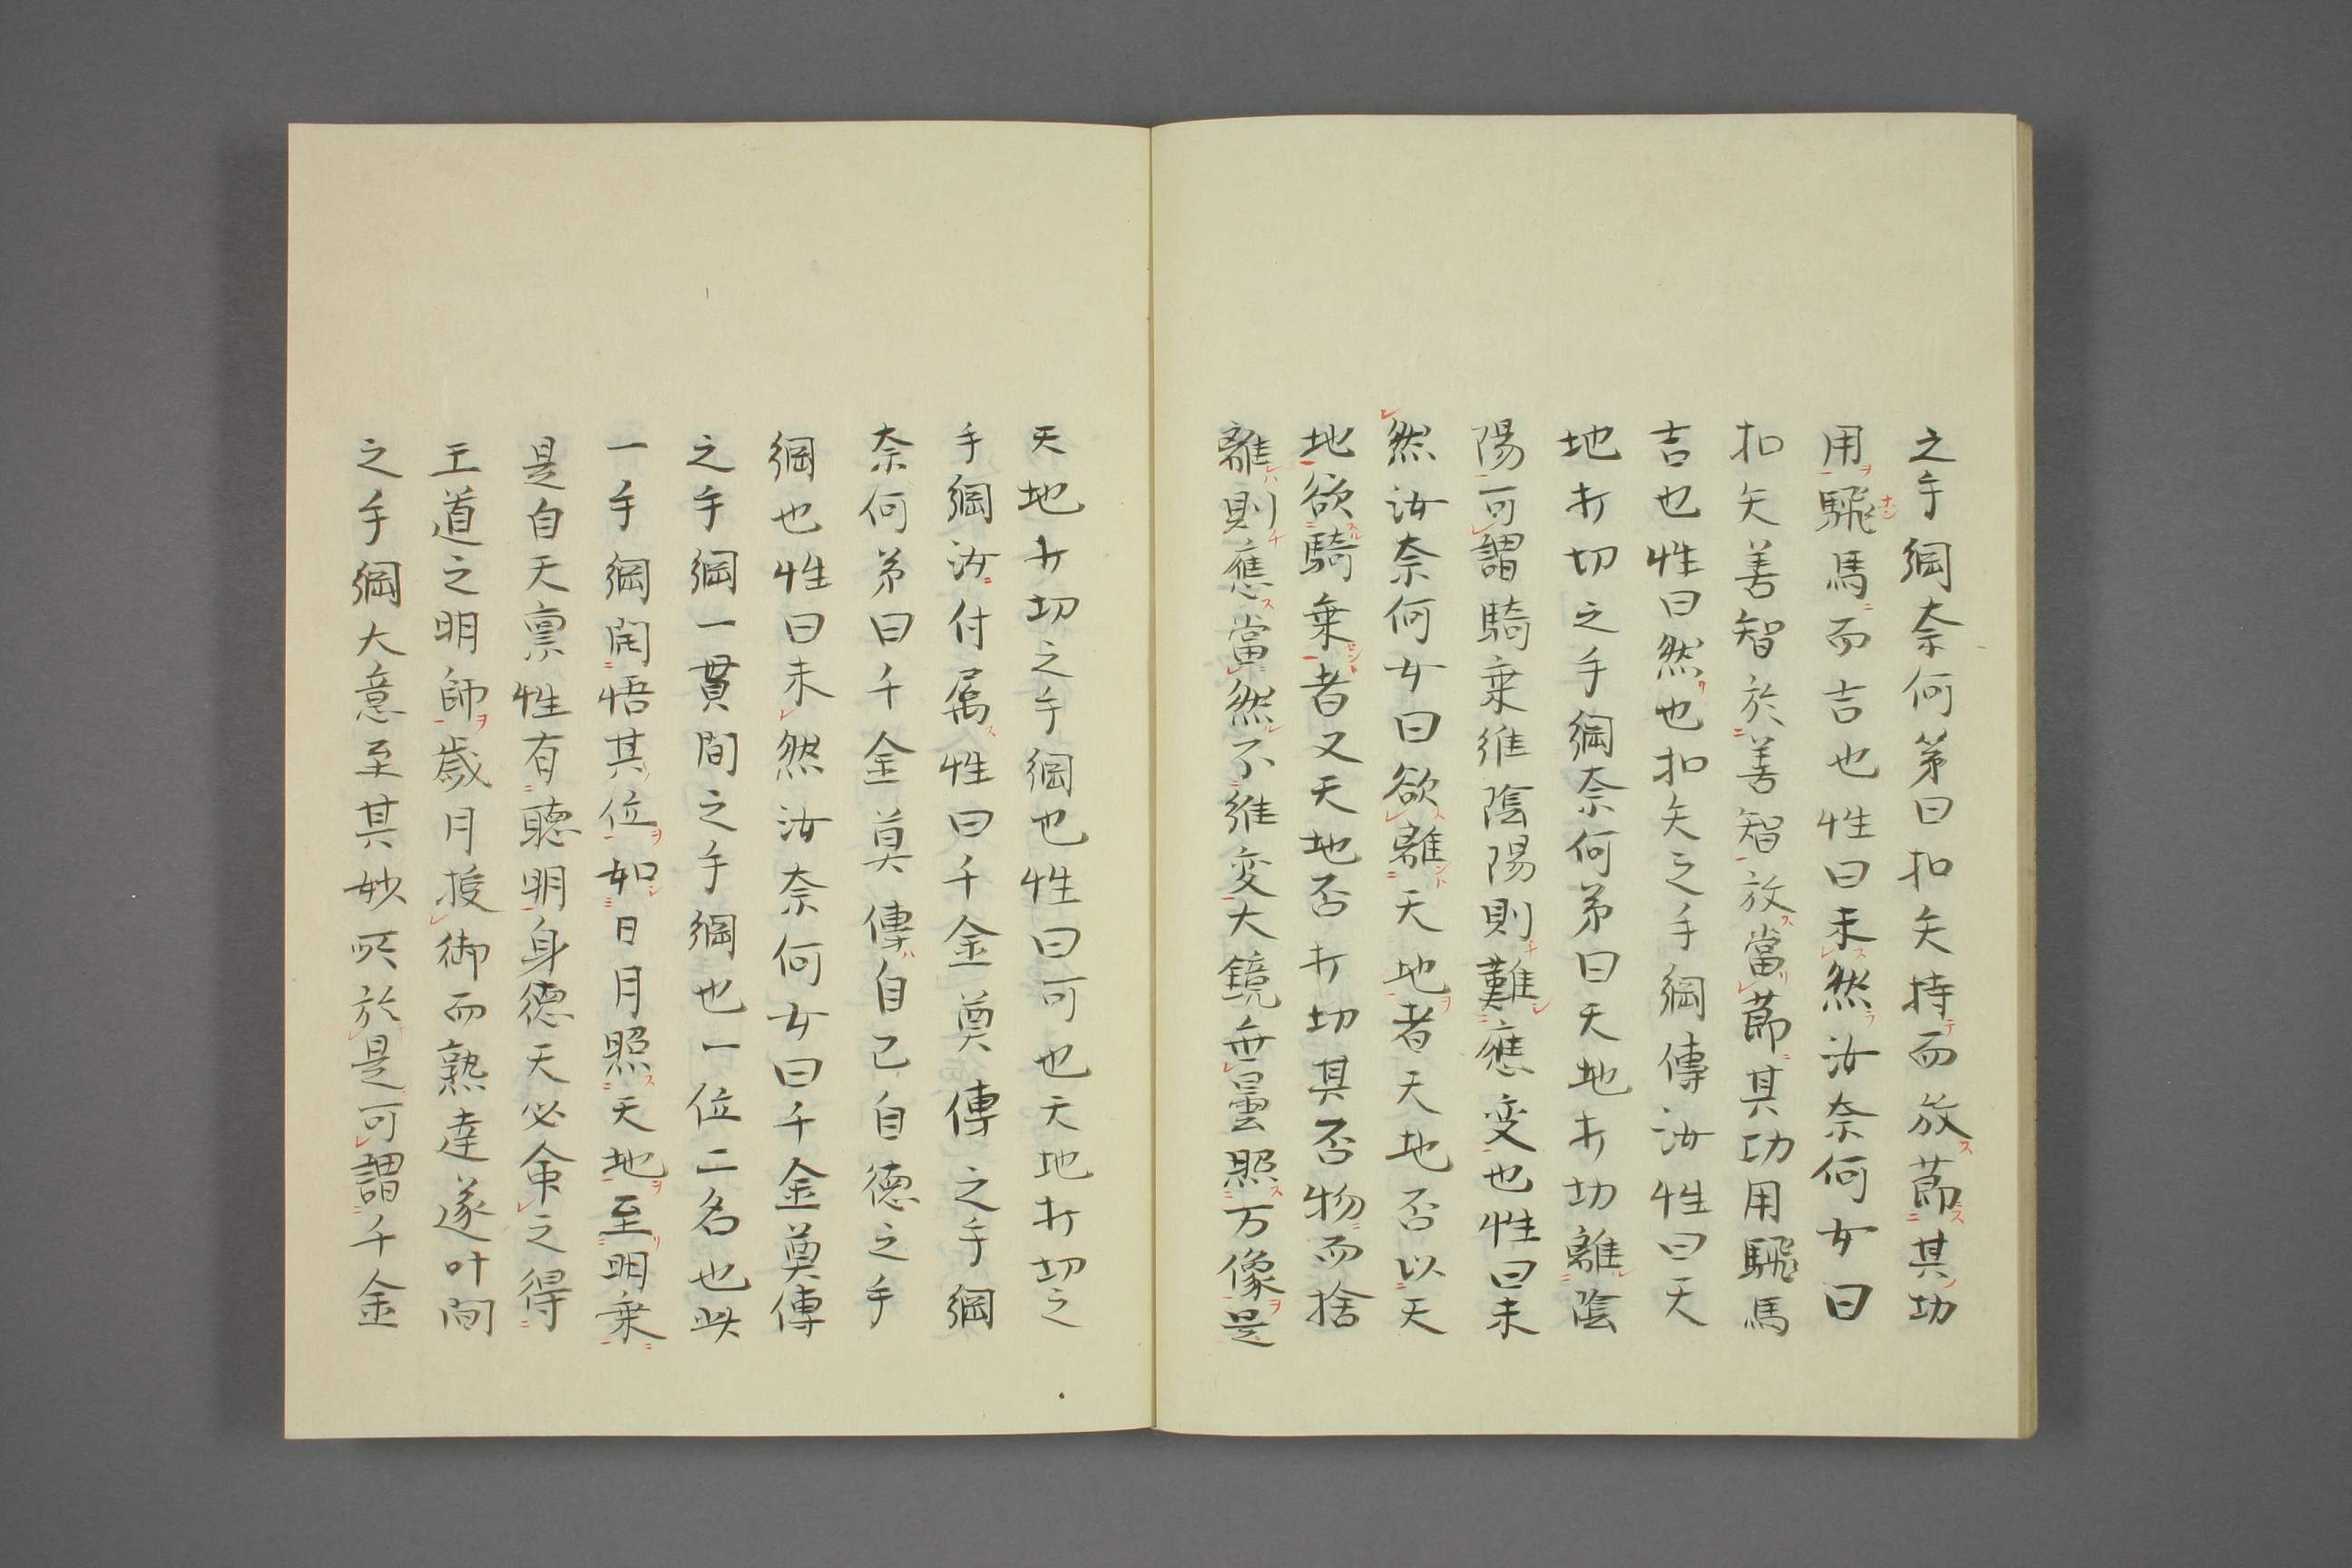 之手綱奈何苐曰扣矢持而放莭其功
用騛馬而吉也性曰未然汝奈何女曰
扣矢善智於善智放當莭其功用騛馬
吉也性曰然也扣矢之手綱傳汝性曰天
地打切之手綱奈何弟曰天地打切離陰
陽可謂騎乗維陰陽則難應变也性曰未
然汝奈何女曰欲離天地者天地否以天
地欲騎乗者又天地否打切其否物而捨
離則應當然不維变大鏡無曇照万像是
天地打切之手綱也性曰可也天地打切之
手綱汝付属性曰千金莫傳之手綱
奈何弟曰千金莫傳自己自德之手
綱也性曰未然汝奈何女曰千金莫傳
之手綱一貫間之手綱也一位二名也此
一手綱開悟其位如日月照天地至明乗
是自天禀性有聴明身德天必命之得
王道之明師歳月授御而熟達遂叶間
之手綱大意至其妙所於是可謂千金